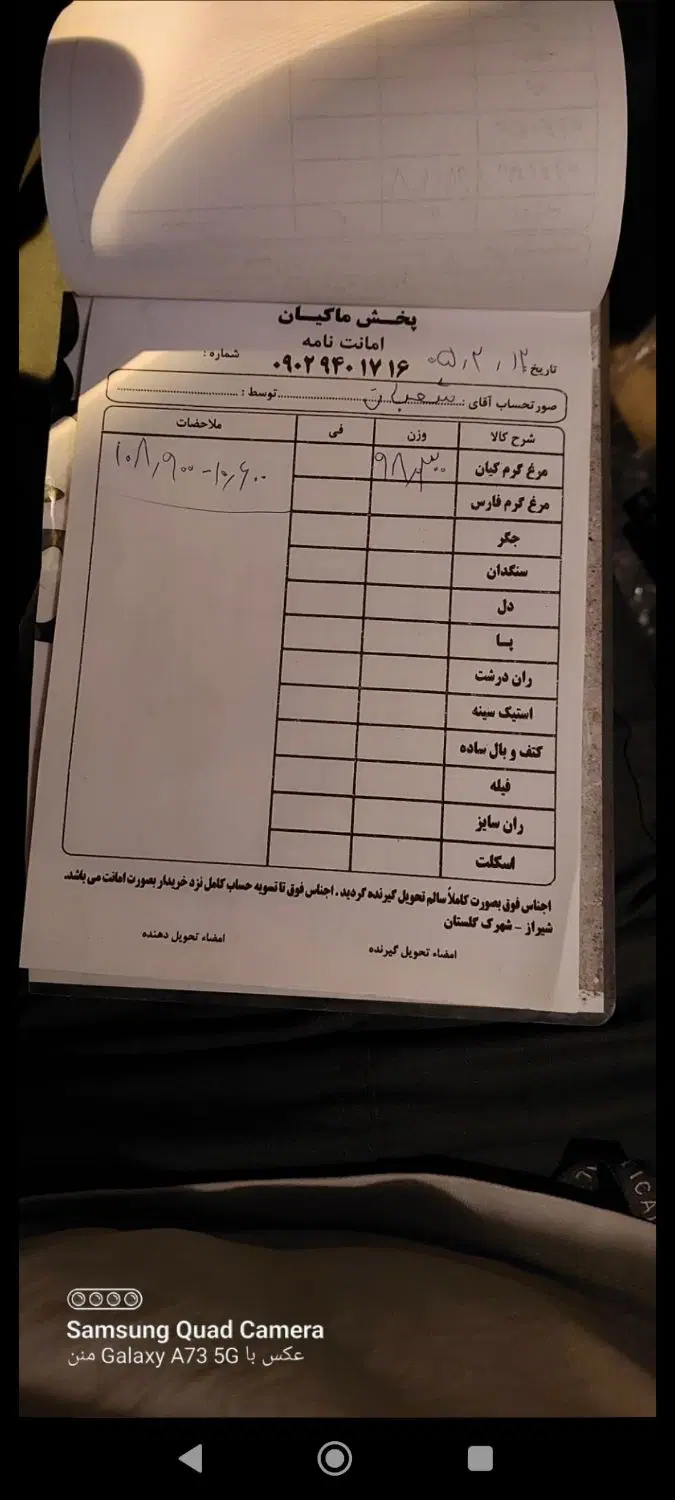 پخش ماکیان
امانت نامه
تاریخ ۰۵,۲,۱۲ ۰۹۰۲ ۹۴۰ ۱۷ ۱۶ شماره :
صورتحساب آقای : توسط :
شرح کالا وزن فی ملاحضات
مرغ گرم کیان ۹۸,۳۰۰ ۱۰۸,۹۰۰-۱۰,۶۰۰
مرغ گرم فارس
جگر
سنگدان
دل
پا
ران درشت
استیک سینه
کتف و بال ساده
فیله
ران سایز
اسکلت
اجناس فوق بصورت کاملاً سالم تحویل گیرنده گردید . اجناس فوق تا تسویه حساب کامل نزد خریدار بصورت امانت می باشد.
شیراز - شهرک گلستان
امضاء تحویل گیرنده امضاء تحویل دهنده
Samsung Quad Camera
عکس با Galaxy A73 5G منن